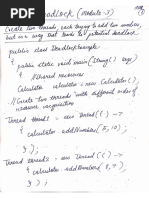 Deadlock (Module-3)
Create two threads, each trying to add two numbers,
but in a way that leads to potential deadlock.
public class DeadlockExample
{ public static void main(String[] args)
{ //Shared resource
Calculator calculator = new Calculator();
// Create two threads with different
resource acquisition
Thread thread1 = new Thread(() ->
{ calculator.addNumber(5, 10);
} );
Thread thread2 = new Thread(() ->
{ calculator.addNumber(8, 7)
} );